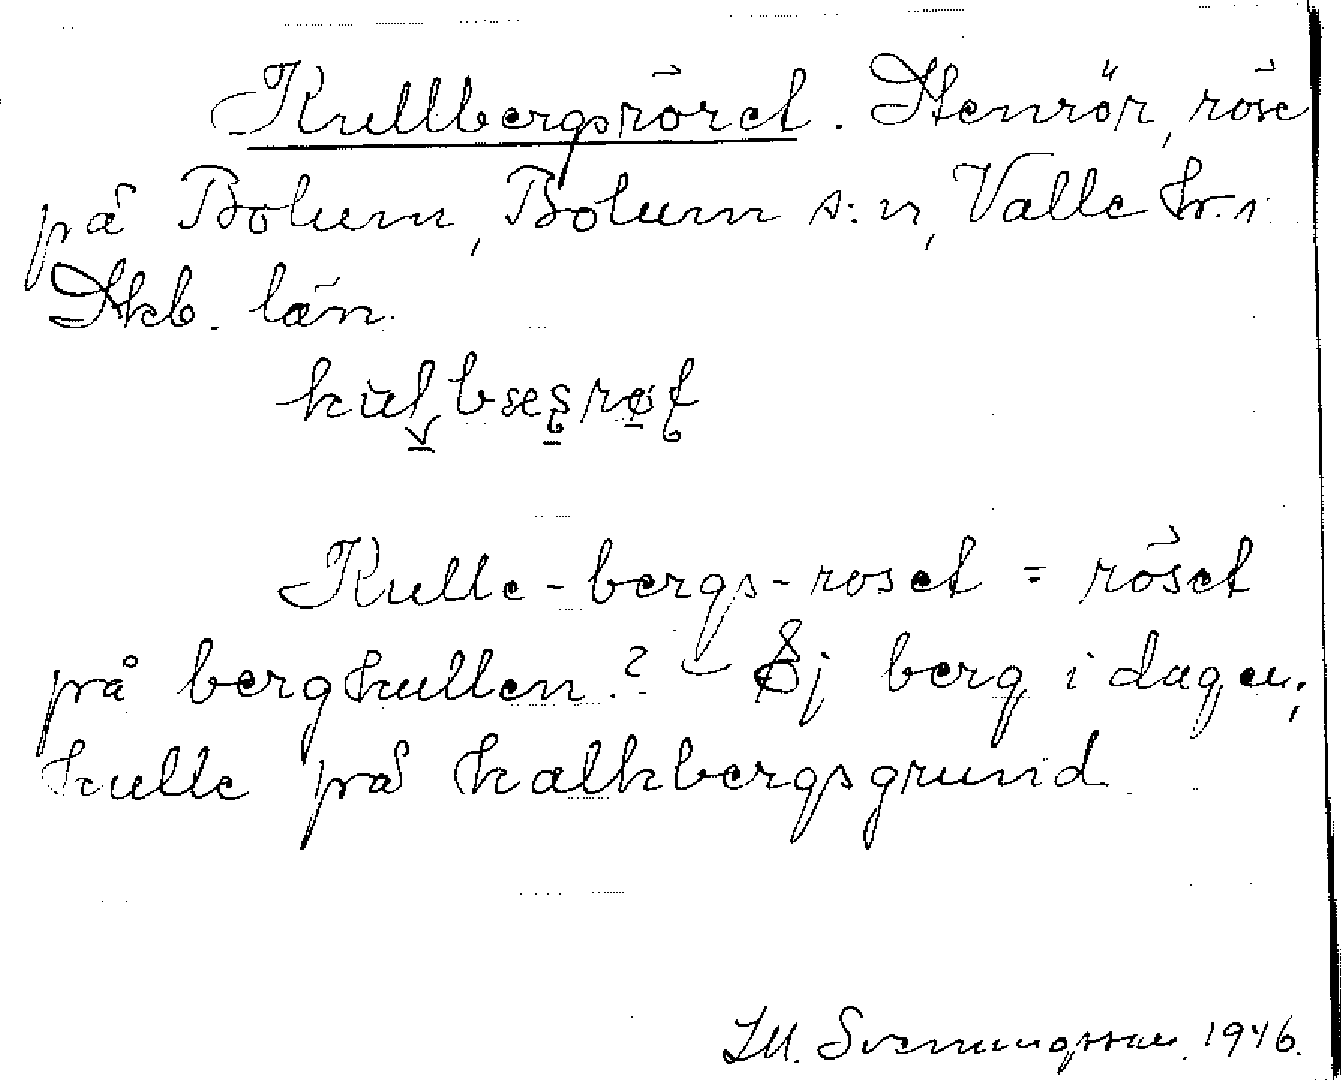 Kullbergsröret. Stenrör, röse
på Bolum, Bolum s:n, Valle hr.
Skb. län.
Kulle-bergs-roset = röset
på bergkullen? – Ej berg i dagen;
kulle på kalkbergsgrund
Svenungsson. 1946.